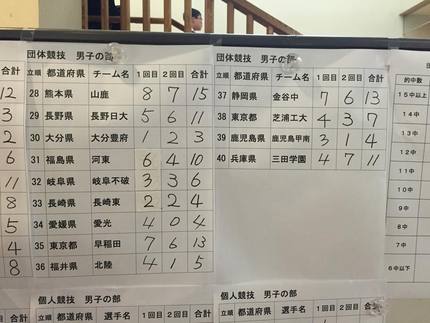 団体競技 男子の部
合計 立順 都道府県 チーム名 1回目 2回目 合計
12 28 熊本県 山鹿 8 7 15
3 29 長野県 長野日大 5 6 11
2 30 大分県 大分豊府 1 2 3
6 31 福島県 河東 6 4 10
11 32 岐阜県 岐阜不破 3 3 6
8 33 長崎県 長崎東 2 2 4
5 34 愛媛県 愛光 4 0 4
4 35 東京都 早稲田 7 6 13
8 36 福井県 北陸 4 1 5
個人競技 男子の部
立順 都道府県 選手名 1回目 2回目 合計
団体競技 男子の部
立順 都道府県 チーム名 1回目 2回目 合計
37 静岡県 金谷中 7 6 13
38 東京都 芝浦工大 4 3 7
39 鹿児島県 鹿児島甲南 3 1 4
40 兵庫県 三田学園 4 7 11
個人競技 男子の部
立順 都道府県 選手名 1回目 2回目 合計
的中数
15中以上
14中
13中
12中
11中
10中
9中
8中
7中
6中以下